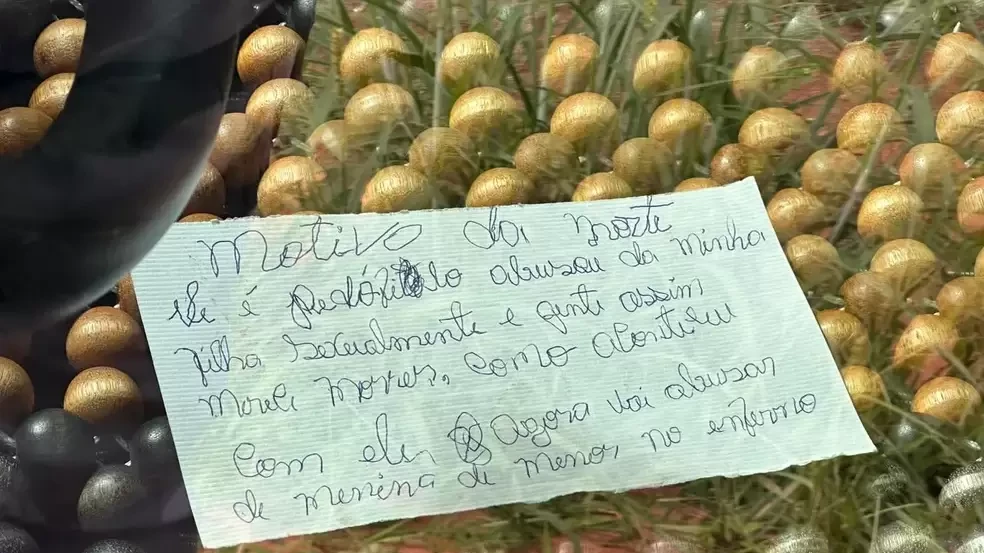 Motivo da morte
ele é pedófilo abusou da minha
filha sexualmente e gente assim
mereci morrer, como aconticeu
com ele, Agora vai abusar
de menina de menor no enferno